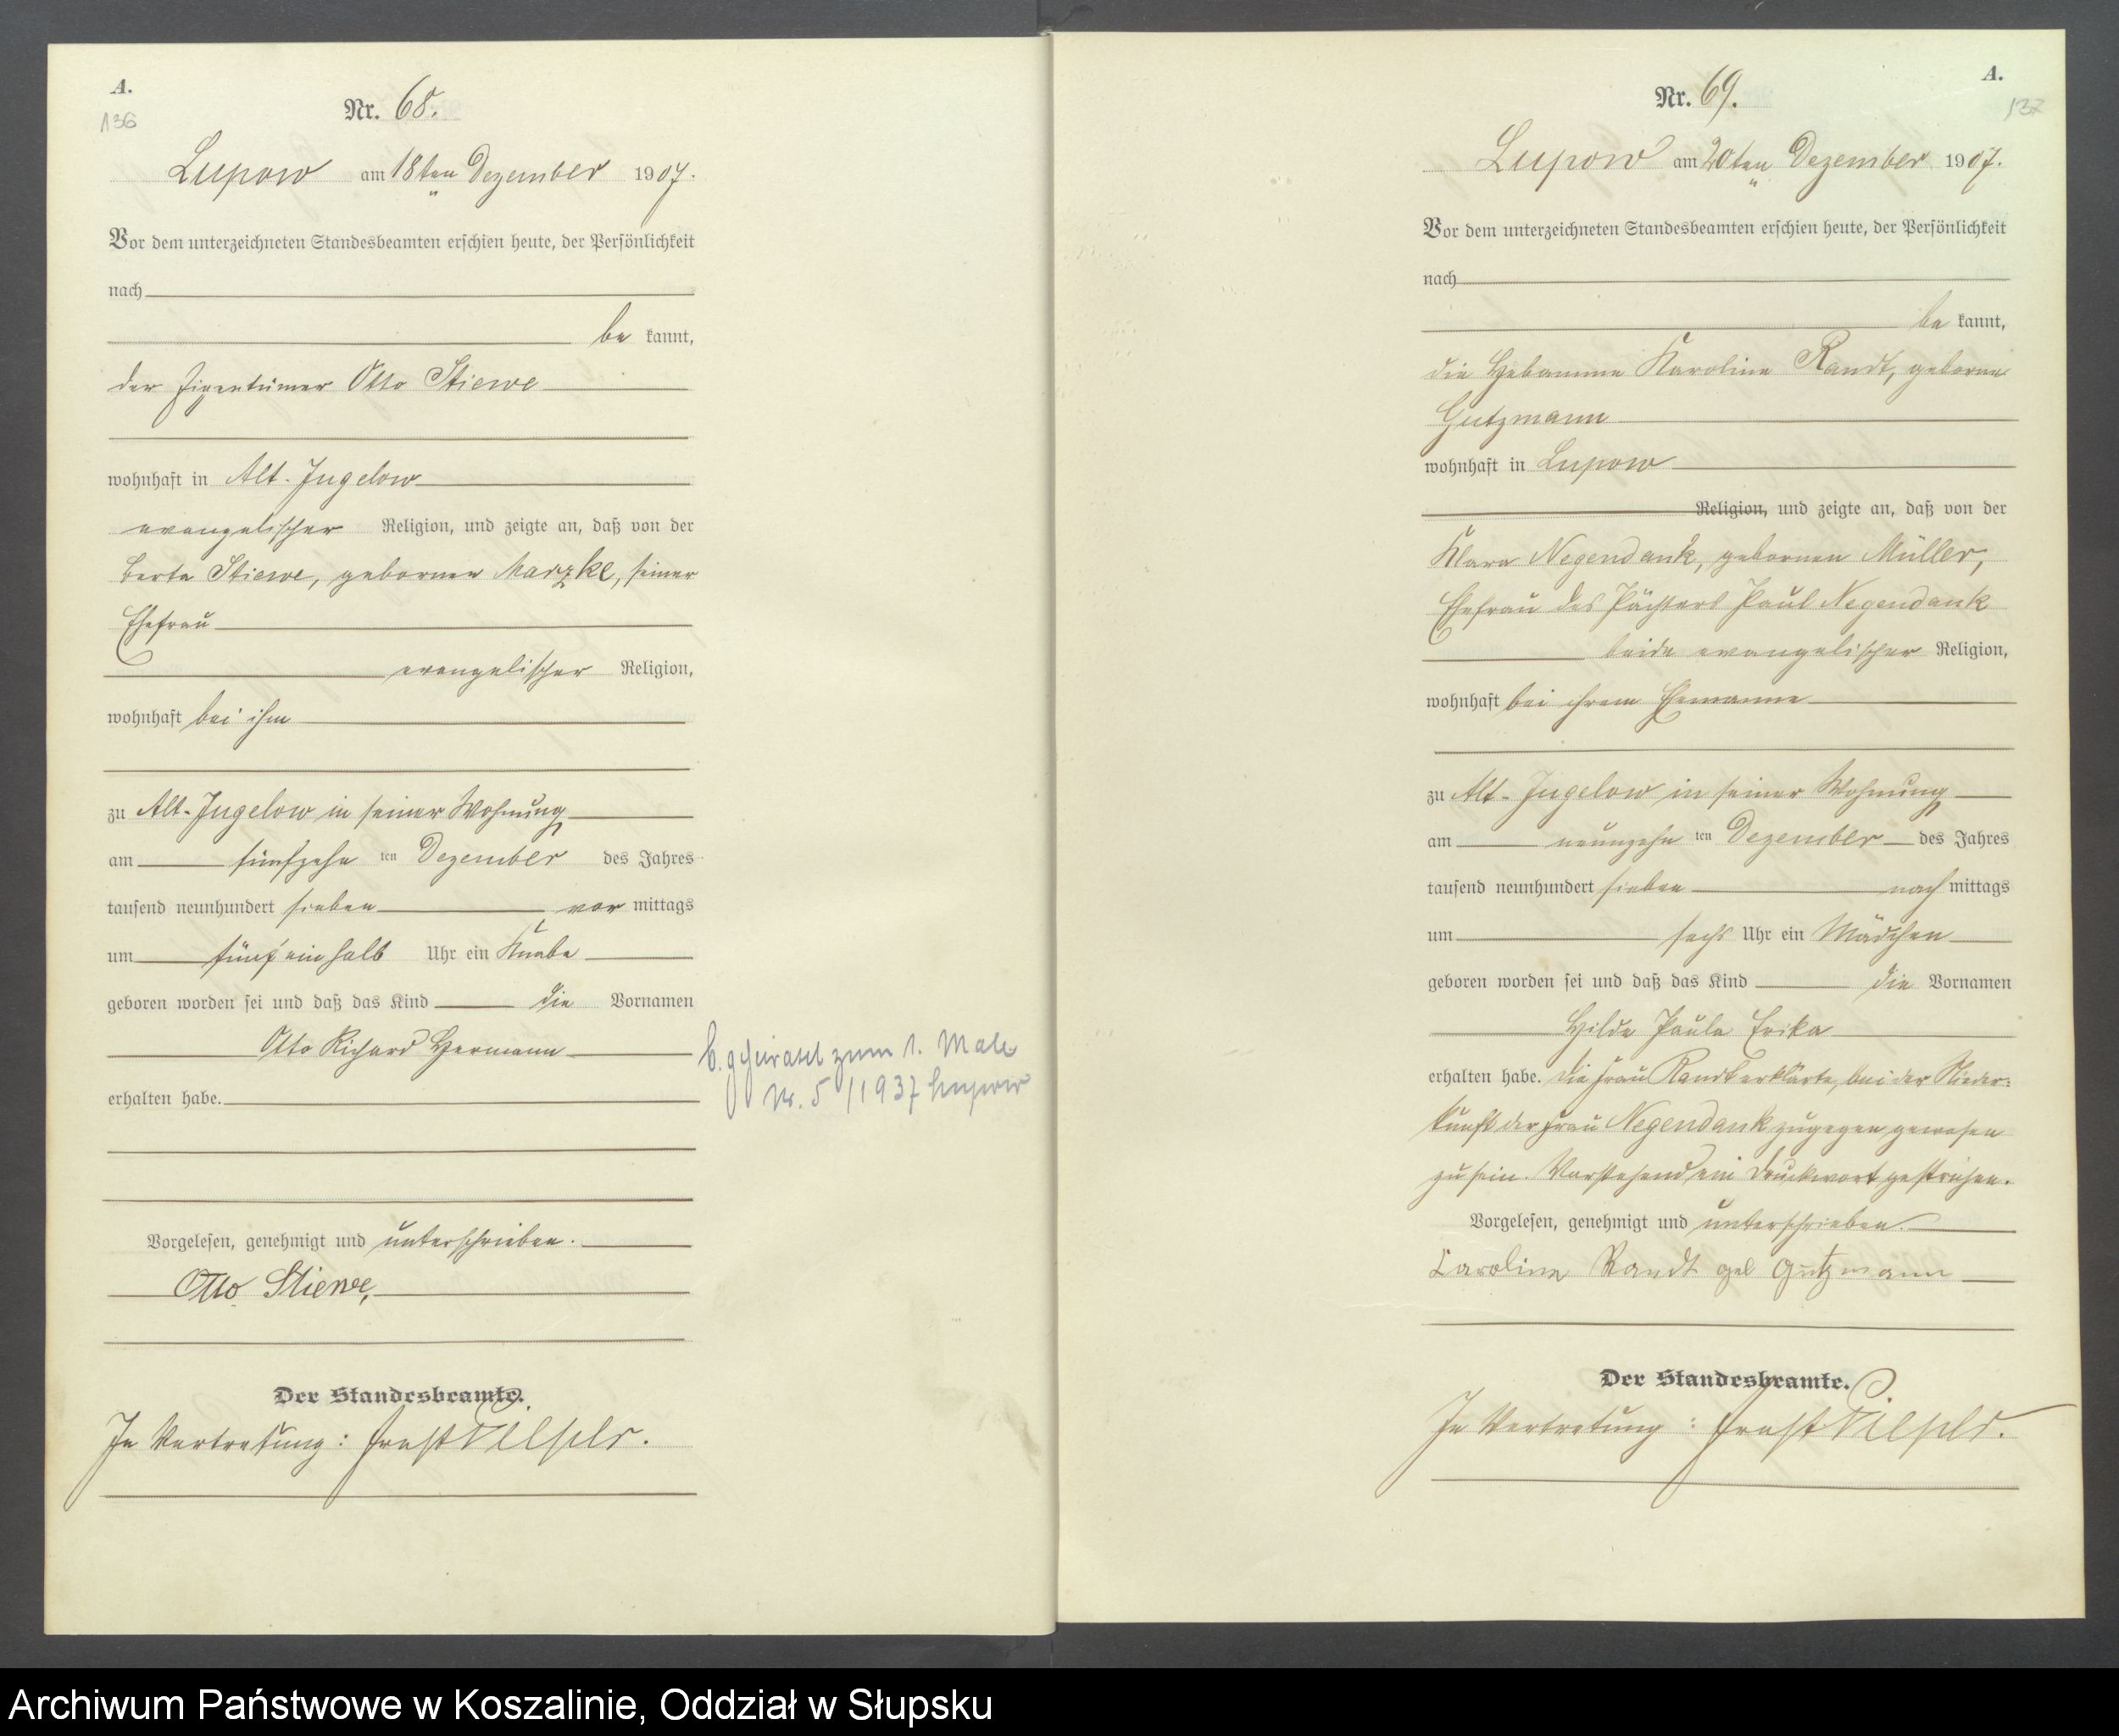 A.
136
Nr. 68.
Lupow am 18ten Dezember 1907.
Vor dem unterzeichneten Standesbeamten erschien heute, der Persönlichkeit
nach
be kannt,
der Eigentümer Otto Stiewe
wohnhaft in Alt-Jugelow
evangelischer Religion, und zeigte an, daß von der
Berta Stiewe, gebornen Marzke, seiner
Ehefrau
evangelischer Religion,
wohnhaft bei ihm
zu Alt-Jugelow in seiner Wohnung
am fünfzehn ten Dezember des Jahres
tausend neunhundert sieben vor mittags
um fünf ein halb Uhr ein Knabe
geboren worden sei und daß das Kind die Vornamen
Otto Richard Hermann
erhalten habe.
geheiratet zum 1. Male
Nr. 5/1937 Lupow
Vorgelesen, genehmigt und unterschrieben.
Otto Stiewe,
Der Standesbeamte.
In Vertretung: Ernst
A.
137
Nr. 69.
Lupow am 20ten Dezember 1907.
Vor dem unterzeichneten Standesbeamten erschien heute, der Persönlichkeit
nach
be kannt,
die Hebamme Karoline Randt, geborne
Gutzmann
wohnhaft in Lupow
Religion, und zeigte an, daß von der
Klara Negendank, gebornen Müller,
Ehefrau des Pächters Paul Negendank
beide evangelischer Religion,
wohnhaft bei ihrem Ehemanne
zu Alt-Jugelow in seiner Wohnung
am neunzehn ten Dezember des Jahres
tausend neunhundert sieben nach mittags
um sechs Uhr ein Mädchen
geboren worden sei und daß das Kind die Vornamen
Hilde Paula Erika
erhalten habe. Die Frau Randt erklärte, bei der Nieder-
kunft der Frau Negendank zugegen gewesen
zu sein. Vorstehend ein Druckwort gestrichen.
Vorgelesen, genehmigt und unterschrieben.
Caroline Randt geb Gutzmann
Der Standesbeamte.
In Vertretung: Ernst
Archiwum Państwowe w Koszalinie, Oddział w Słupsku